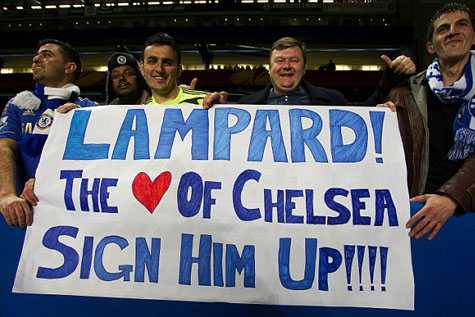 LAMPARD!
THE ❤ OF CHELSEA
SIGN HIM UP!!!!